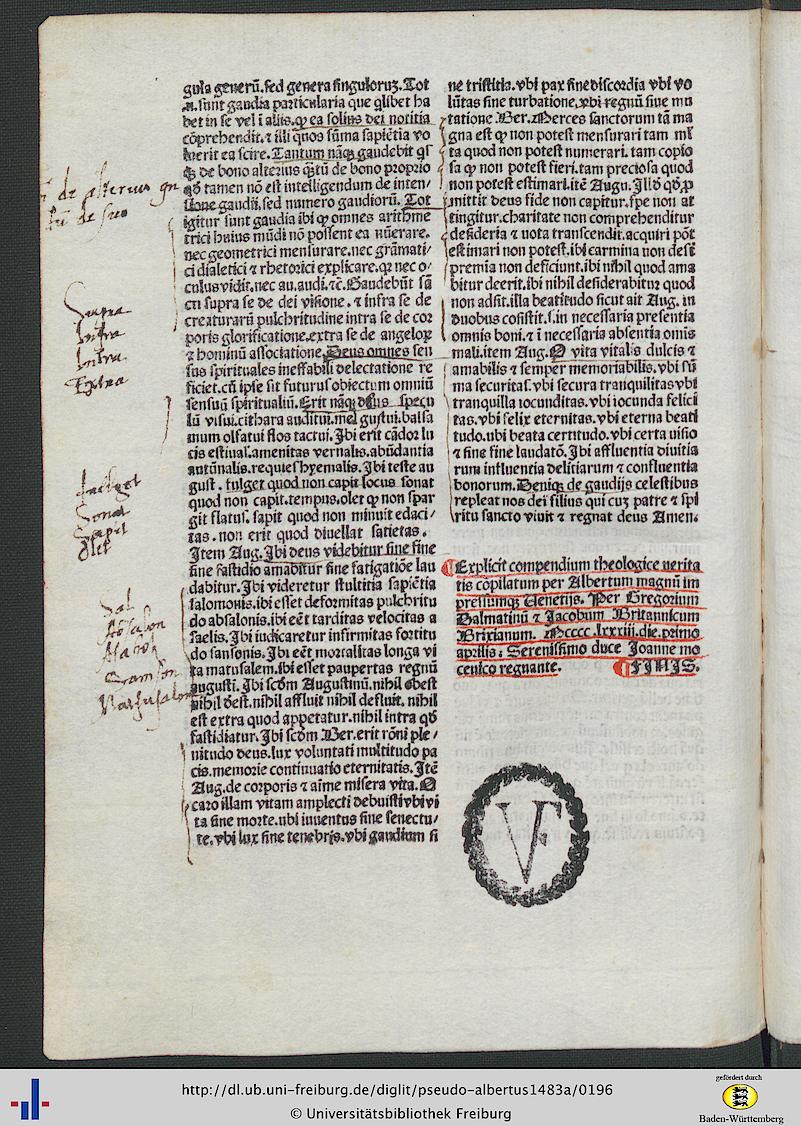 gula generū. sed genera singuloruʒ. Tot
.n. sunt gaudia particularia que qlibet ha
bet in se vel ī aliis. ꝙ ea solius dei notitia
cōprehendit. ⁊ illi quos sūma sapiētia vo
luerit ea scire. Tantum nāqʒ gaudebit qs
qʒ de bono alterius q̄tū de bono proprio
qđ tamen nō est intelligendum de inten-
sione gaudii. sed numero gaudiorū. Tot
igitur sunt gaudia ibi ꝙ omnes arithme
trici huius mūdi nō possent ea nūerare.
nec geometrici mensurare. nec grāmati/
ci dialetici ⁊ rhetorici explicare. qʒ nec o/
culus vidit. nec au. audi. ⁊c̄. Gaudebūt sā
cti supra se de dei visione. ⁊ infra se de
creaturarū pulchritudine intra se de cor
poris glorificatione. extra se de angeloꝝ
⁊ hominū associatione. Deus omnes sen
sus spirituales ineffabili delectatione re
ficiet. cū ipse sit futurus obiectum omniū
sensuū spiritualiū. Erit nāqʒ deus specu
lū visui. cithara auditui. mel gustui. balsa
mum olfatui flos tactui. Ibi erit cādor lu
cis estiual'. amenitas vernalis. abūdantia
autūnalis. requies hyemalis. Ibi teste au
gust. fulget quod non capit locus sonat
quod non capit. tempus. olet ꝙ non spar
git flatus. sapit quod non minuit edaci/
tas. non erit quod diuellat satietas.
Item Aug. Ibi deus videbitur sine fine
sine fastidio amabitur sine fatigatiōe lau
dabitur. Ibi videretur stultitia sapiētia
salomonis. ibi esset deformitas pulchritu
do absalonis. ibi eēt tarditas velocitas a
saelis. Ibi iudicaretur infirmitas fortitu
do sansonis. Ibi eēt mortalitas longa vi
ta matusalem. ibi esset paupertas regnū
augusti. Ibi scđm Augustinū. nihil obest
nihil deest. nihil affluit nihil defluit. nihil
est extra quod appetatur. nihil intra qđ
fastidiatur. Ibi scđm Ber. erit rōni ple/
nitudo deus. lux voluntati multitudo pa
cis. memorie continuatio eternitatis. Itē
Aug. de corporis ⁊ aīme misera vita. O
caro illam vitam amplecti debuisti vbi vi
ta sine morte. ubi iuuentus sine senectu/
te. vbi lux sine tenebris. vbi gaudium si
ne tristitia. vbi pax sine discordia vbi vo
lūtas sine turbatione. vbi regnū sine mu
tatione Ber. Merces sanctorum tā ma
gna est ꝙ non potest mensurari tam ml'
ta quod non potest numerari. tam copio
sa ꝙ non potest fieri. tam preciosa quod
non potest estimari. itē Augu. Illđ qđ ꝓ
mittit deus fide non capitur. spe non at
tingitur. charitate non comprehenditur
desideria ⁊ uota transcendit. acquiri pōt
estimari non potest. ibi carmina non desē
premia non deficiunt. ibi nihil quod ama
bitur deerit. ibi nihil desiderabitur quod
non adsit. illa beatitudo sicut ait Aug. in
duobus cōsistit. s. in necessaria presentia
omnis boni. ⁊ ī necessaria absentia omīs
mali. item Aug. O vita vitalis dulcis ⁊
amabilis ⁊ semper memorabilis. vbi sū
ma securitas. vbi secura tranquilitas vbi
tranquilla iocunditas. vbi iocunda felici
tas. vbi felix eternitas. vbi eterna beati
tudo. ubi beata certitudo. vbi certa uisio
⁊ sine fine laudatō. Ibi affluentia diuitia
rum influentia delitiarum ⁊ confluentia
bonorum. Deniqʒ de gaudijs celestibus
repleat nos dei filius qui cuʒ patre ⁊ spi
ritu sancto viuit ⁊ regnat deus Amen.
¶Explicit compendium theologice uerita
tis cōpilatum per Albertum magnū im
pressumqʒ Uenetijs. Per Gregorium
Dalmatinū ⁊ Jacobum Britannicum
Brixianum. Mcccc.lxxxiii. die. primo
aprilis: Serenissimo duce Joanne mo
cenico regnante. ¶FINIS.
de alterius
de suo
Supra
Infra
Intra
Extra
fulget
Sonat
Sapit
Olet
Sal
Absalon
Asael
Samson
Mathusalem
VF
http://dl.ub.uni-freiburg.de/diglit/pseudo-albertus1483a/0196
© Universitätsbibliothek Freiburg
gefördert durch
Baden-Württemberg